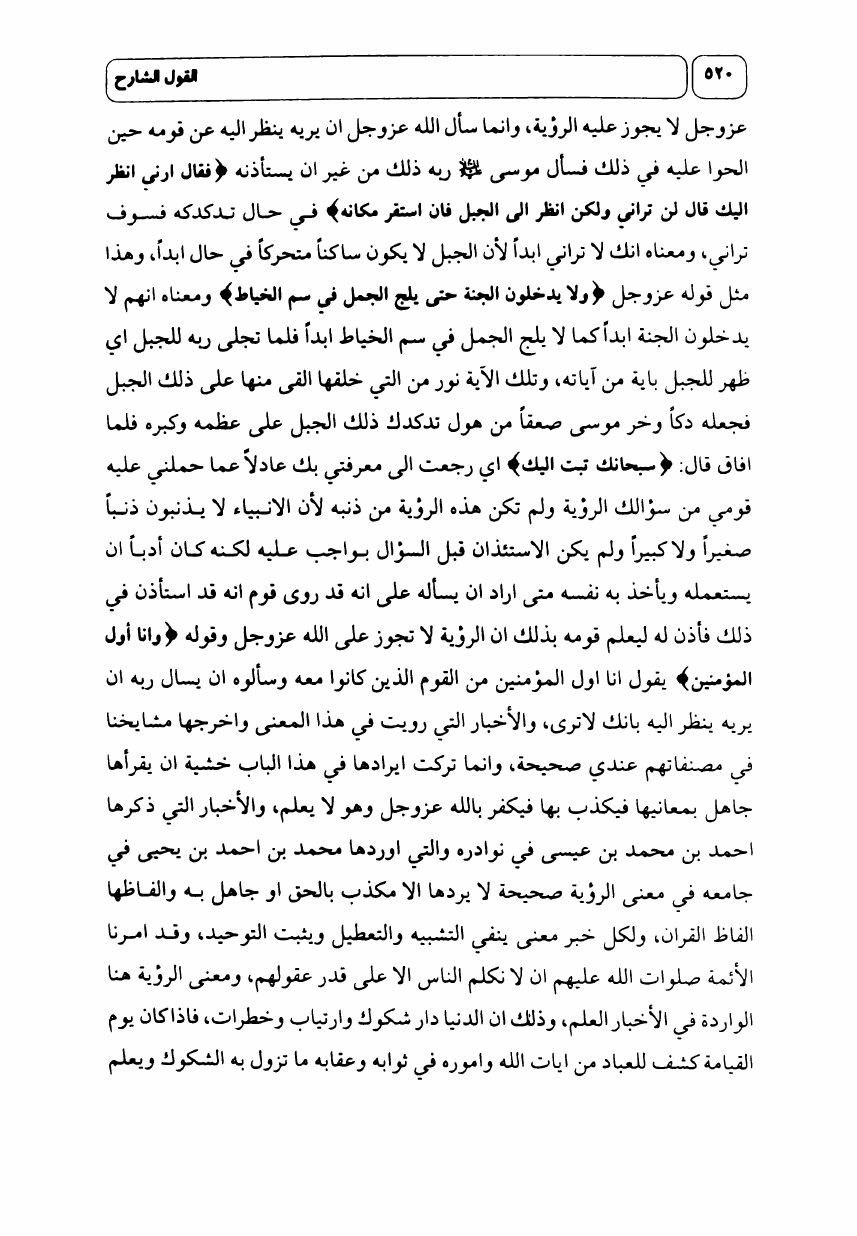 ٥٢٠
القول الشارح
عزوجل لا يجوز عليه الرؤية، وانما سأل الله عزوجل ان يريه ينظر اليه عن قومه حين
الحوا عليه في ذلك فسأل موسى ﷺ ربه ذلك من غير ان يستأذنه ﴿فقال ارني انظر
اليك قال لن تراني ولكن انظر الى الجبل فان استقر مكانه﴾ في حال تدكدكه فسوف
تراني، ومعناه انك لا تراني ابداً لأن الجبل لا يكون ساكناً متحركاً في حال ابداً، وهذا
مثل قوله عزوجل ﴿ولا يدخلون الجنة حتى يلج الجمل في سم الخياط﴾ ومعناه انهم لا
يدخلون الجنة ابداً كما لا يلج الجمل في سم الخياط ابداً فلما تجلى ربه للجبل اي
ظهر للجبل باية من آياته، وتلك الآية نور من التي خلقها القى منها على ذلك الجبل
فجعله دكاً وخر موسى صعقاً من هول تدكدك ذلك الجبل على عظمه وكبره فلما
افاق قال: ﴿سبحانك تبت اليك﴾ اي رجعت الى معرفتي بك عادلاً عما حملني عليه
قومي من سؤالك الرؤية ولم تكن هذه الرؤية من ذنبه لأن الانبياء لا يذنبون ذنباً
صغيراً ولا كبيراً ولم يكن الاستئذان قبل السؤال بواجب عليه لكنه كان أدباً ان
يستعمله ويأخذ به نفسه متى اراد ان يسأله على انه قد روى قوم انه قد استأذن في
ذلك فأذن له ليعلم قومه بذلك ان الرؤية لا تجوز على الله عزوجل وقوله ﴿وانا أول
المؤمنين﴾ يقول انا اول المؤمنين من القوم الذين كانوا معه وسألوه ان يسال ربه ان
يريه ينظر اليه بانك لاترى، والأخبار التي رويت في هذا المعنى واخرجها مشايخنا
في مصنفاتهم عندي صحيحة، وانما تركت ايرادها في هذا الباب خشية ان يقرأها
جاهل بمعانيها فيكذب بها فيكفر بالله عزوجل وهو لا يعلم، والأخبار التي ذكرها
احمد بن محمد بن عيسى في نوادره والتي اوردها محمد بن احمد بن يحيى في
جامعه في معنى الرؤية صحيحة لا يردها الا مكذب بالحق او جاهل به والفاظها
الفاظ القران، ولكل خبر معنى ينفي التشبيه والتعطيل ويثبت التوحيد، وقد امرنا
الأئمة صلوات الله عليهم ان لا نكلم الناس الا على قدر عقولهم، ومعنى الرؤية هنا
الواردة في الأخبار العلم، وذلك ان الدنيا دار شكوك وارتياب وخطرات، فاذا كان يوم
القيامة كشف للعباد من ايات الله واموره في ثوابه وعقابه ما تزول به الشكوك ويعلم